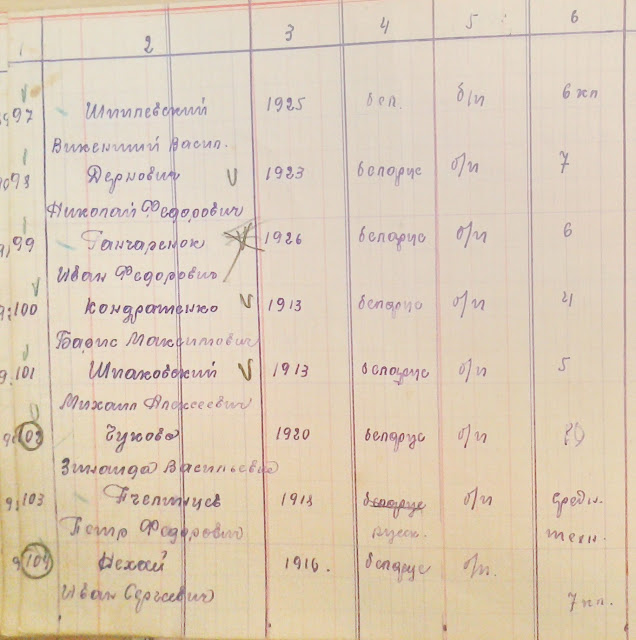 1 2 3 4 5 6
97 Шпилевский 1925 бел. б/п 6 кл
Викентий Васил.
98 Дернович V 1923 беларус б/п 7
Николай Федорович
99 Ганчаренок V 1926 беларус б/п 6
Иван Федорович
100 Кондратенко V 1913 беларус б/п 4
Барис Максимович
101 Шпаковский V 1913 беларус б/п 5
Михаил Алексеевич
102 Чукова 1920 беларус б/п
Зинаида Васильевна
103 Пчелинцев 1918 беларус б/п средн.
Петр Федорович русск. техн.
104 Нехай 1916. беларус б/п.
Иван Сергеевич 7 кл.